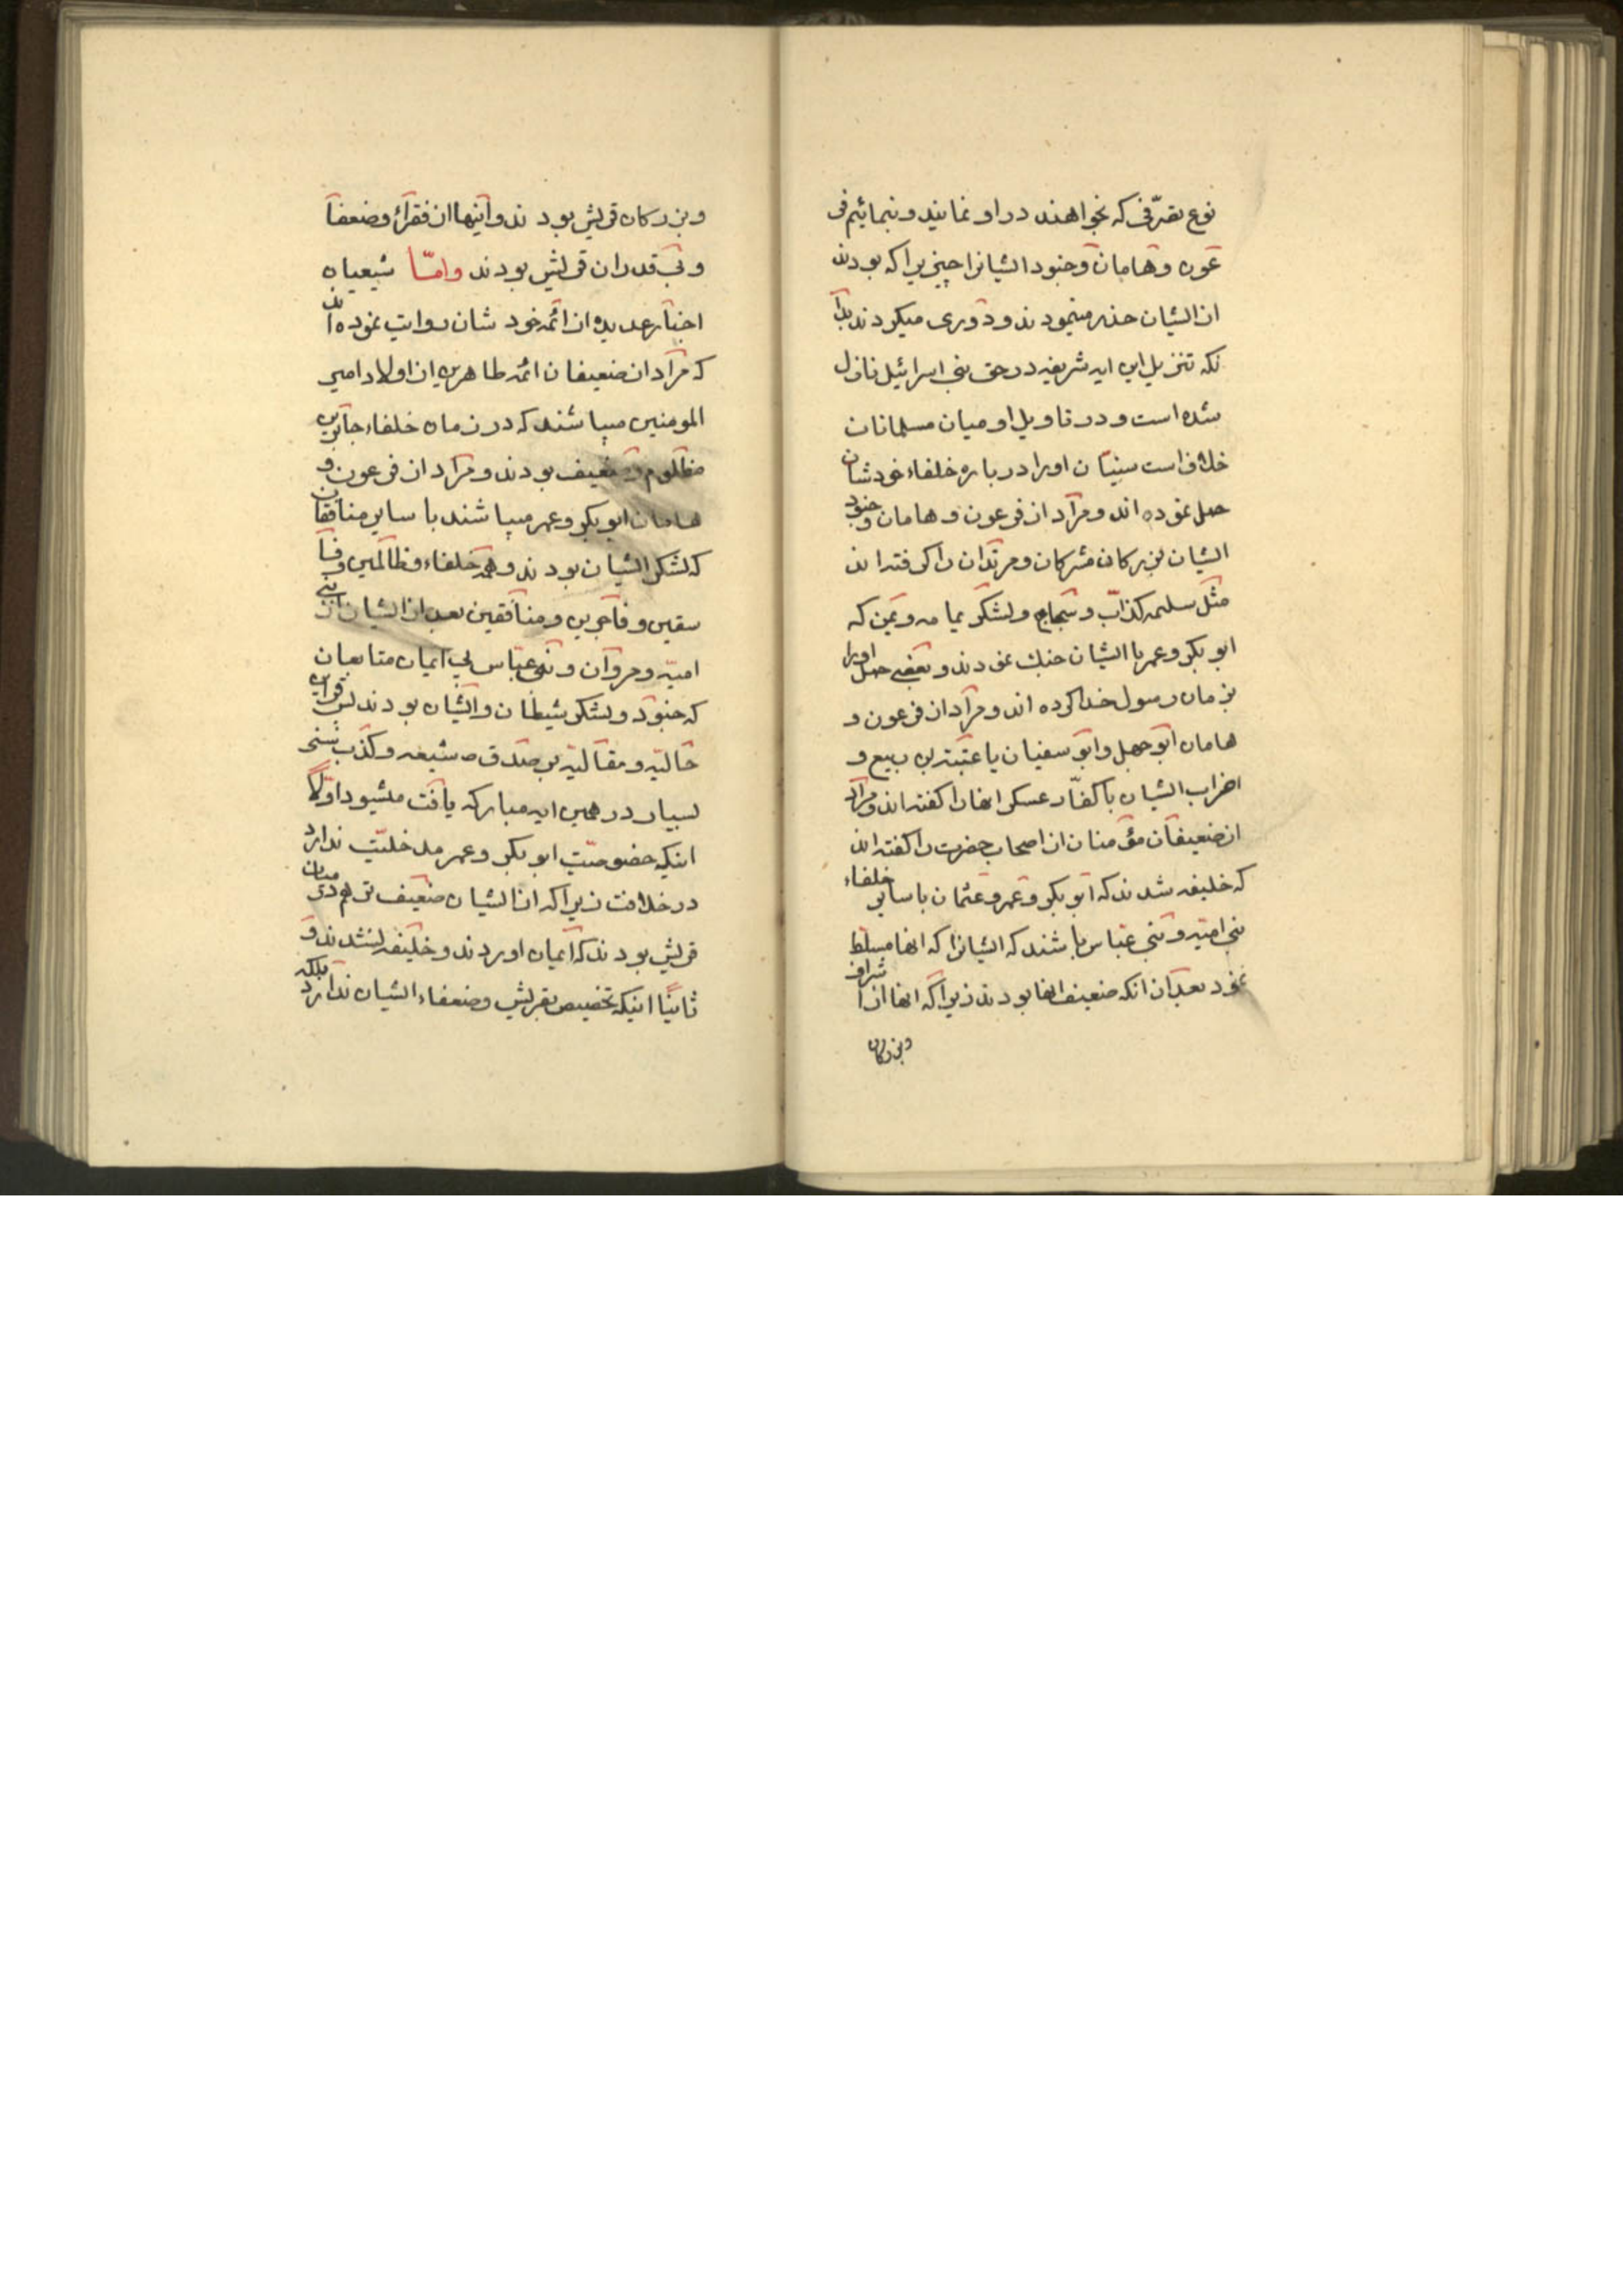 نوع تصرّفی که بخواهند در او نمایند و بنمائیم فر
عون و هامان و جنود ایشانرا چیزیرا که بودند
از ایشان حذر مینمودند و دوری میکردند بدا
نکه تنزیل این ایه شریفه در حق بنی اسرائیل نازل
شده است و در تاویل او میان مسلمانان
خلاف است سنیّان اورا در باره خلفاء خودشان
حمل نموده اند و مراد از فرعون و هامان و جنود
ایشان بزرکان مشرکان و مرتدان را کرفته اند
مثل سلیمه کذاب و سجاح و لشکر یمامه و یمن که
ابو بکر و عمر با ایشان جنك نمودند و بعضی حمل اورا
بزمان رسول خدا کرده اند و مراد از فرعون و
هامان ابو جهل و ابو سفیان یا عتبة بن ربیع و
اضراب ایشان با کفّار عسکر انها را کفته اند و مراد
از ضعیفان مؤمنان از اصحاب حضرت را کفته اند
که خلیفه شدند که ابو بکر و عمر و عثمان با سایر خلفاء
بنی امیّه و بنی عبّاس باشند که ایشانرا که انها مسلط
نمود بعد از انکه ضعیف انها بودند زیرا که انها از اشراف
و بزرکان
و بزرکان قریش بودند و اینها از فقراء و ضعفا
و بی قدران قریش بودند وامّا شیعیان
اخبار عدیده از ائمه خودشان روایت نموده اند
که مراد از ضعیفان ائمه طاهرین از اولاد امیر
المومنین میباشند که در زمان خلفاء جائرین
مظلوم و ضعیف بودند و مراد از فرعون و
هامان ابو بکر و عمر میباشند با سایر منافقان
که لشکر ایشان بودند و همه خلفاء و ظالمین و فا
سقین و فاجرین و منافقین بعد از ایشان از بنی
امیّه و مروان و بنی عبّاس بی ایمان متابعان
که جنود و لشکر شیطان و ایشان بودند پس قراین
حالیّه و مقالیّه بر صدق شیعه و کذب سنی
بسیار در همین ایه مبارکه یافت میشود اوّلاً
اینکه خصوصیّت ابو بکر و عمر مدخلیّت ندارد
در خلافت زیرا که از ایشان ضعیف تر هم در میان
قریش بودند که ایمان اوردند و خلیفه نشدند و
ثانیًا اینکه تخصیص بقریش و ضعفاء ایشان ندارد بلکه